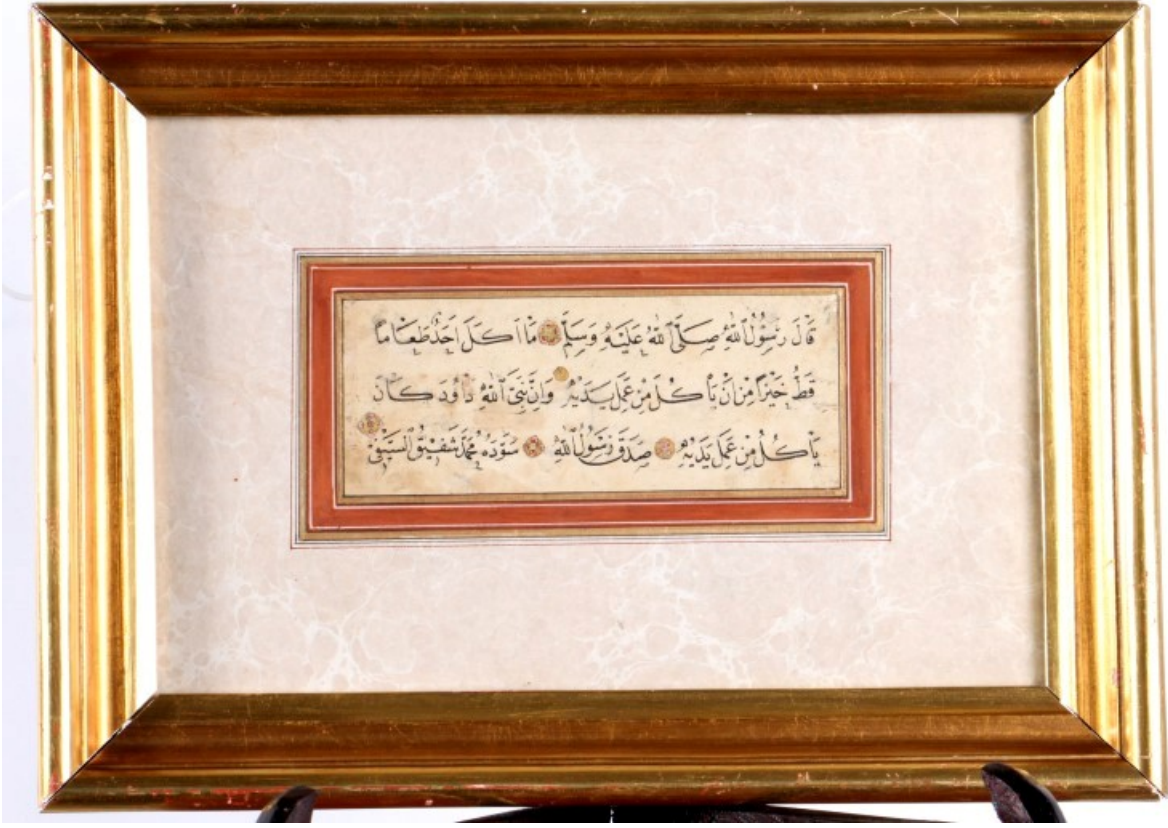 قَالَ رَسُولُ ٱللّٰهِ صَلَّى ٱللّٰهُ عَلَيْهِ وَسَلَّمَ مَا اَكَلَ اَحَدٌ طَعَامًا
قَطُّ خَيْرًا مِنْ اَنْ يَأْكُلَ مِنْ عَمَلِ يَدَيْهِ وَاِنَّ نَبِىَّ ٱللّٰهِ دَاوُدَ كَانَ
يَأْكُلُ مِنْ عَمَلِ يَدَيْهِ صَدَقَ رَسُولُ ٱللّٰهِ سَوَّدَهُ مُحَمَّد شَفِيق